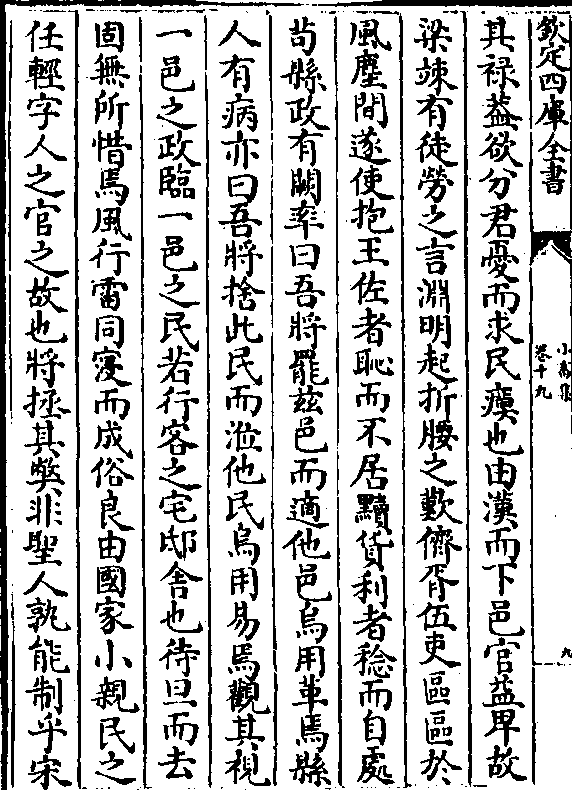 欽定四庫全書
小畜集
卷十九
九
其禄益欲分君憂而求民瘼也由漢而下邑官益卑故
梁竦有徒勞之言淵明起折腰之歎儕胥伍吏區區於
風塵間遂使抱王佐者恥而不居黷貨利者稔而自處
茍縣政有闕率曰吾將罷兹邑而適他邑烏用革焉縣
人有病亦曰吾將捨此民而涖他民烏用易焉觀其視
一邑之政臨一邑之民若行客之宅邸舍也待旦而去
固無所惜焉風行雷同寖而成俗良由國家小親民之
任輕字人之官之故也將拯其弊非聖人孰能制乎宋